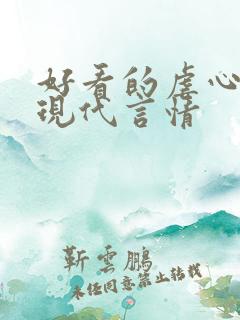 好看的虐心
現代言情
靳雲鵬
未经同意禁止转载